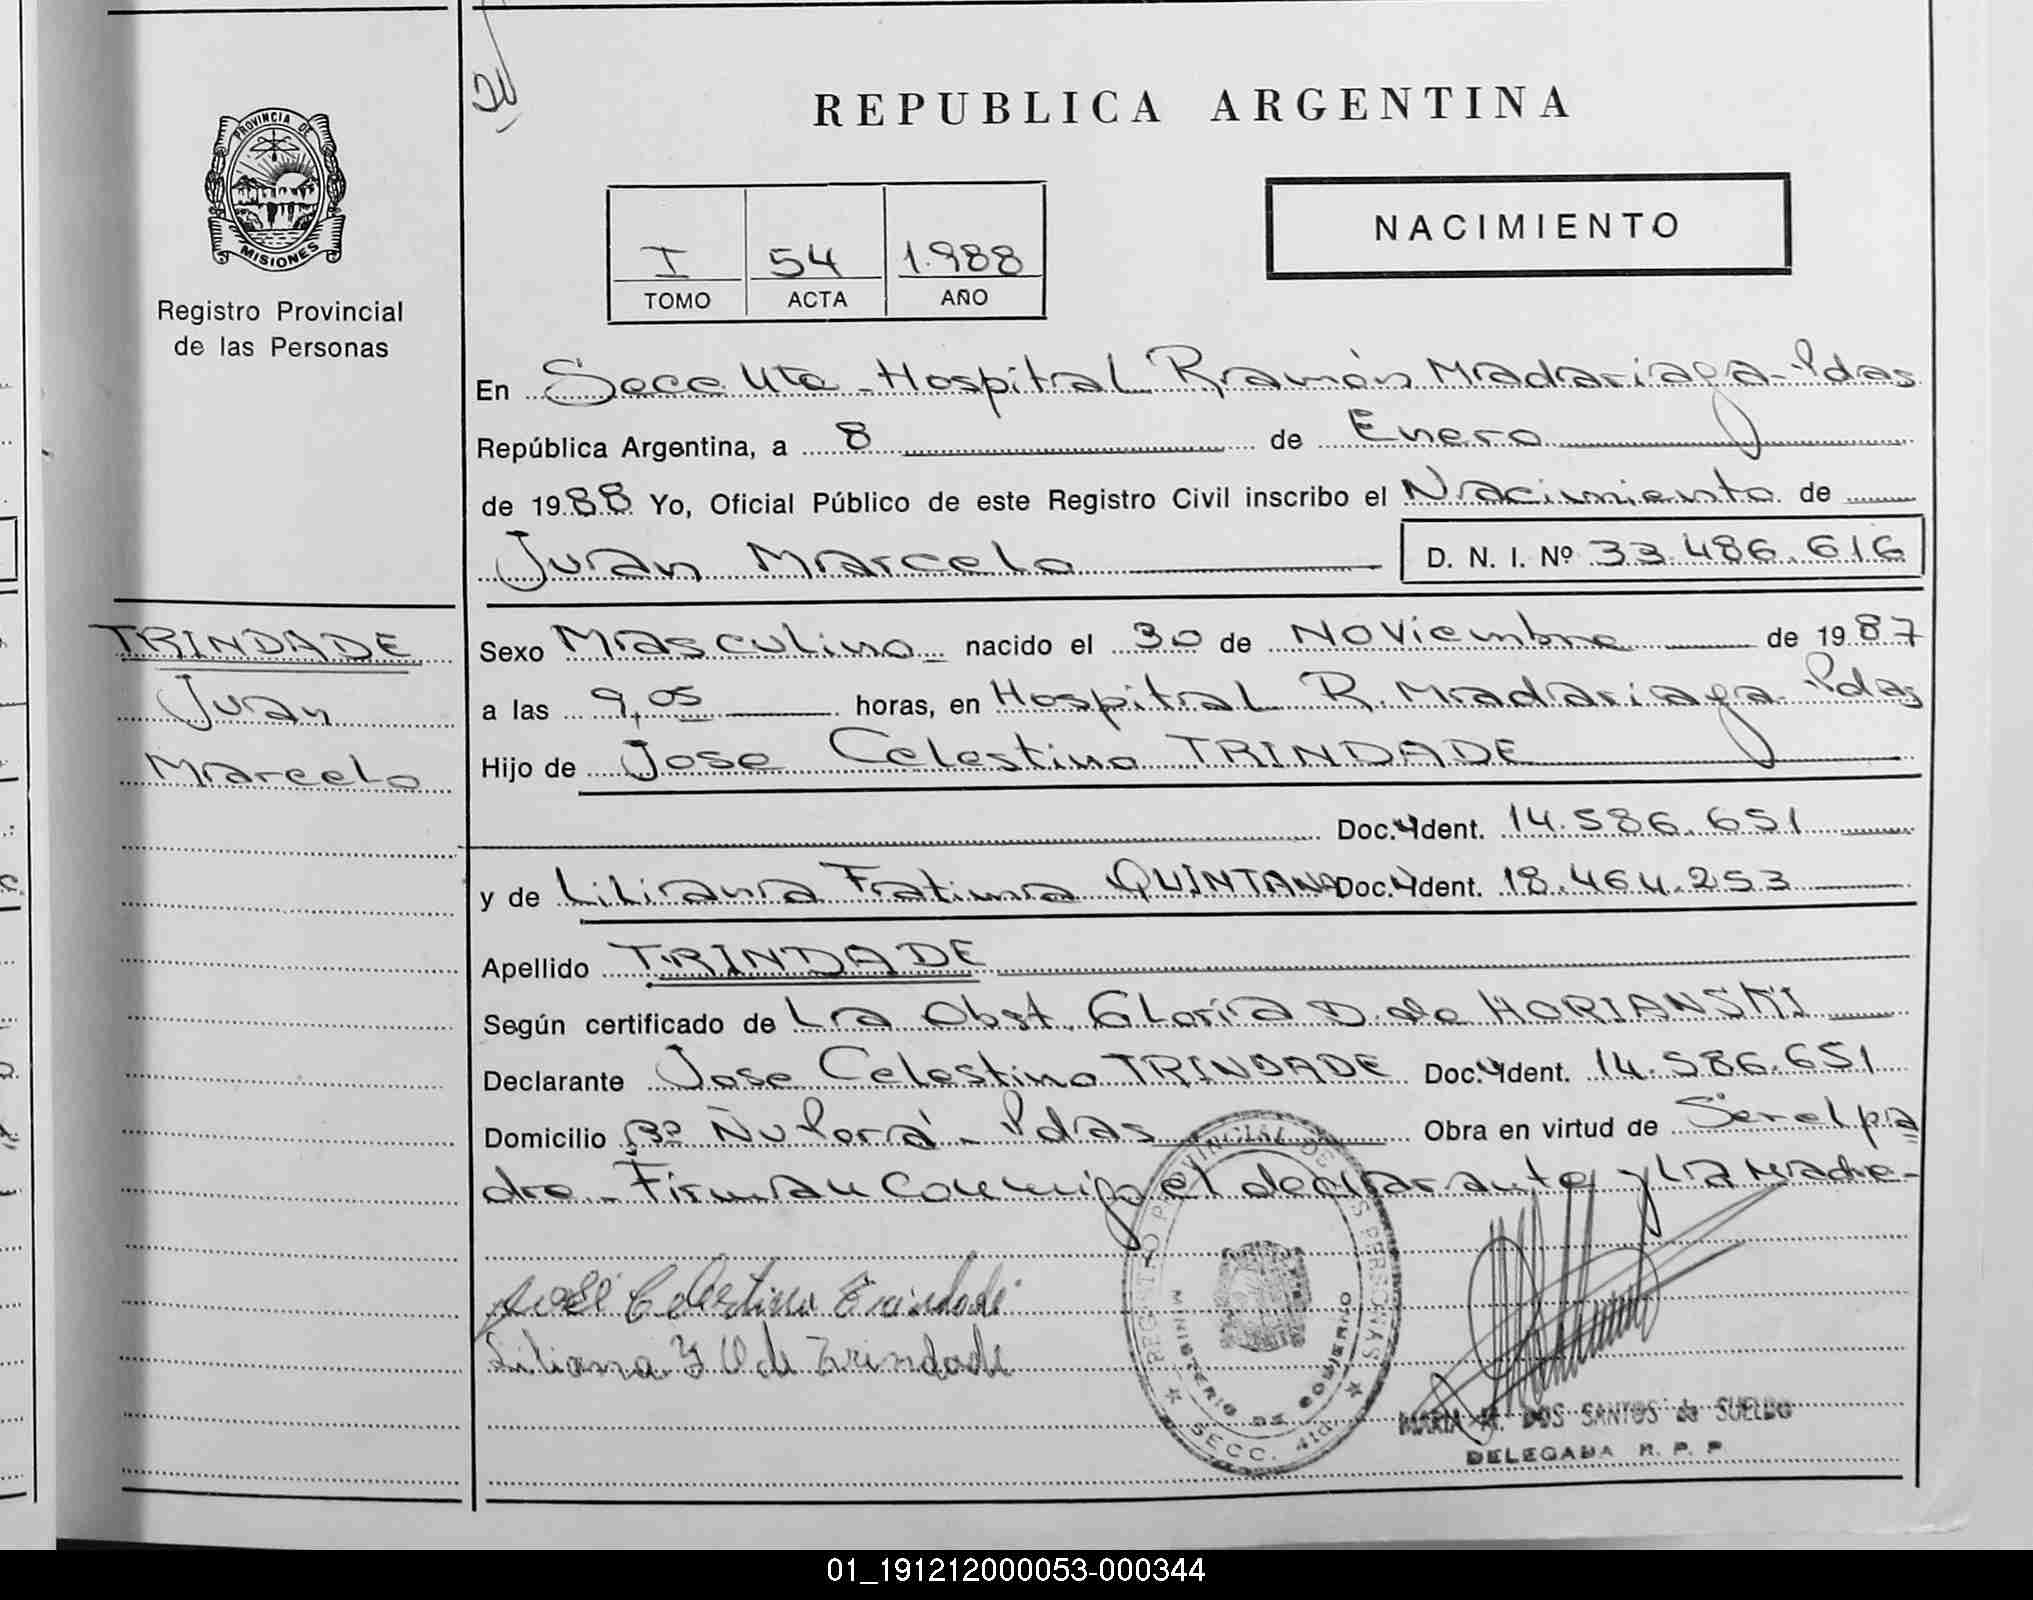 REPUBLICA ARGENTINA
PROVINCIA DE
MISIONES
Registro Provincial
de las Personas
NACIMIENTO
I 54 1.988
TOMO ACTA AÑO
En Secc 4ta - Hospital Ramón Madariaga - Pdas
República Argentina, a 8 de Enero
de 1988 Yo, Oficial Público de este Registro Civil inscribo el Nacimiento de
Juan Marcelo D. N. I. Nº 33.486.616
TRINDADE
Juan
Marcelo
Sexo Masculino nacido el 30 de Noviembre de 1987
a las 9,05 horas, en Hospital R. Madariaga - Pdas
Hijo de Jose Celestino TRINDADE
Doc. Ident. 14.586.651
y de Liliana Fatima QUINTANA Doc. Ident. 18.464.253
Apellido TRINDADE
Según certificado de La Obst. Gloria D. de HORIANSKI
Declarante Jose Celestino TRINDADE Doc. Ident. 14.586.651
Domicilio Bº Ñu Porá - Pdas Obra en virtud de Ser el pa
dre - Firman conmigo el declarante y la Madre -
José Celestino Trindade
Liliana F Q de Trindade
REGISTRO PROVINCIAL DE LAS PERSONAS
MINISTERIO DE GOBIERNO
SECC. 4ta
MARIA DOS SANTOS de SUELDO
DELEGADA R. P. P.
01_191212000053-000344